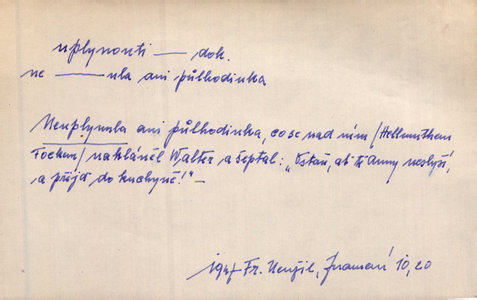 uplynouti — dok.
ne — ula ani půlhodinka
Neuplynula ani půlhodinka, co se nad ním /Hellmuthem
Fockem/ nakláněl Walter a šeptal: „Vstaň, ať tě Anny neslyší,
a přijď do kuchyně!" —
1947 Fr. Neužil, Znamení 10, 20